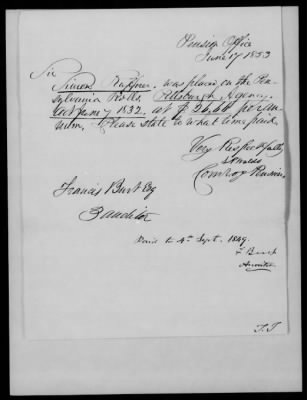 Pension Office
June 17 1853
Sir
Simon Ruffner, was placed on the Pen-
sylvania Rolls, Pittsburgh, Agency,
Act June 7 1832, at $26,68 per an-
num, Please state to what time paid.
Very Respectfully
Com of Pensions
Francis Burt Esq
3 auditor
Paid to 4th Sept. 1849.
F Burt
Auditor